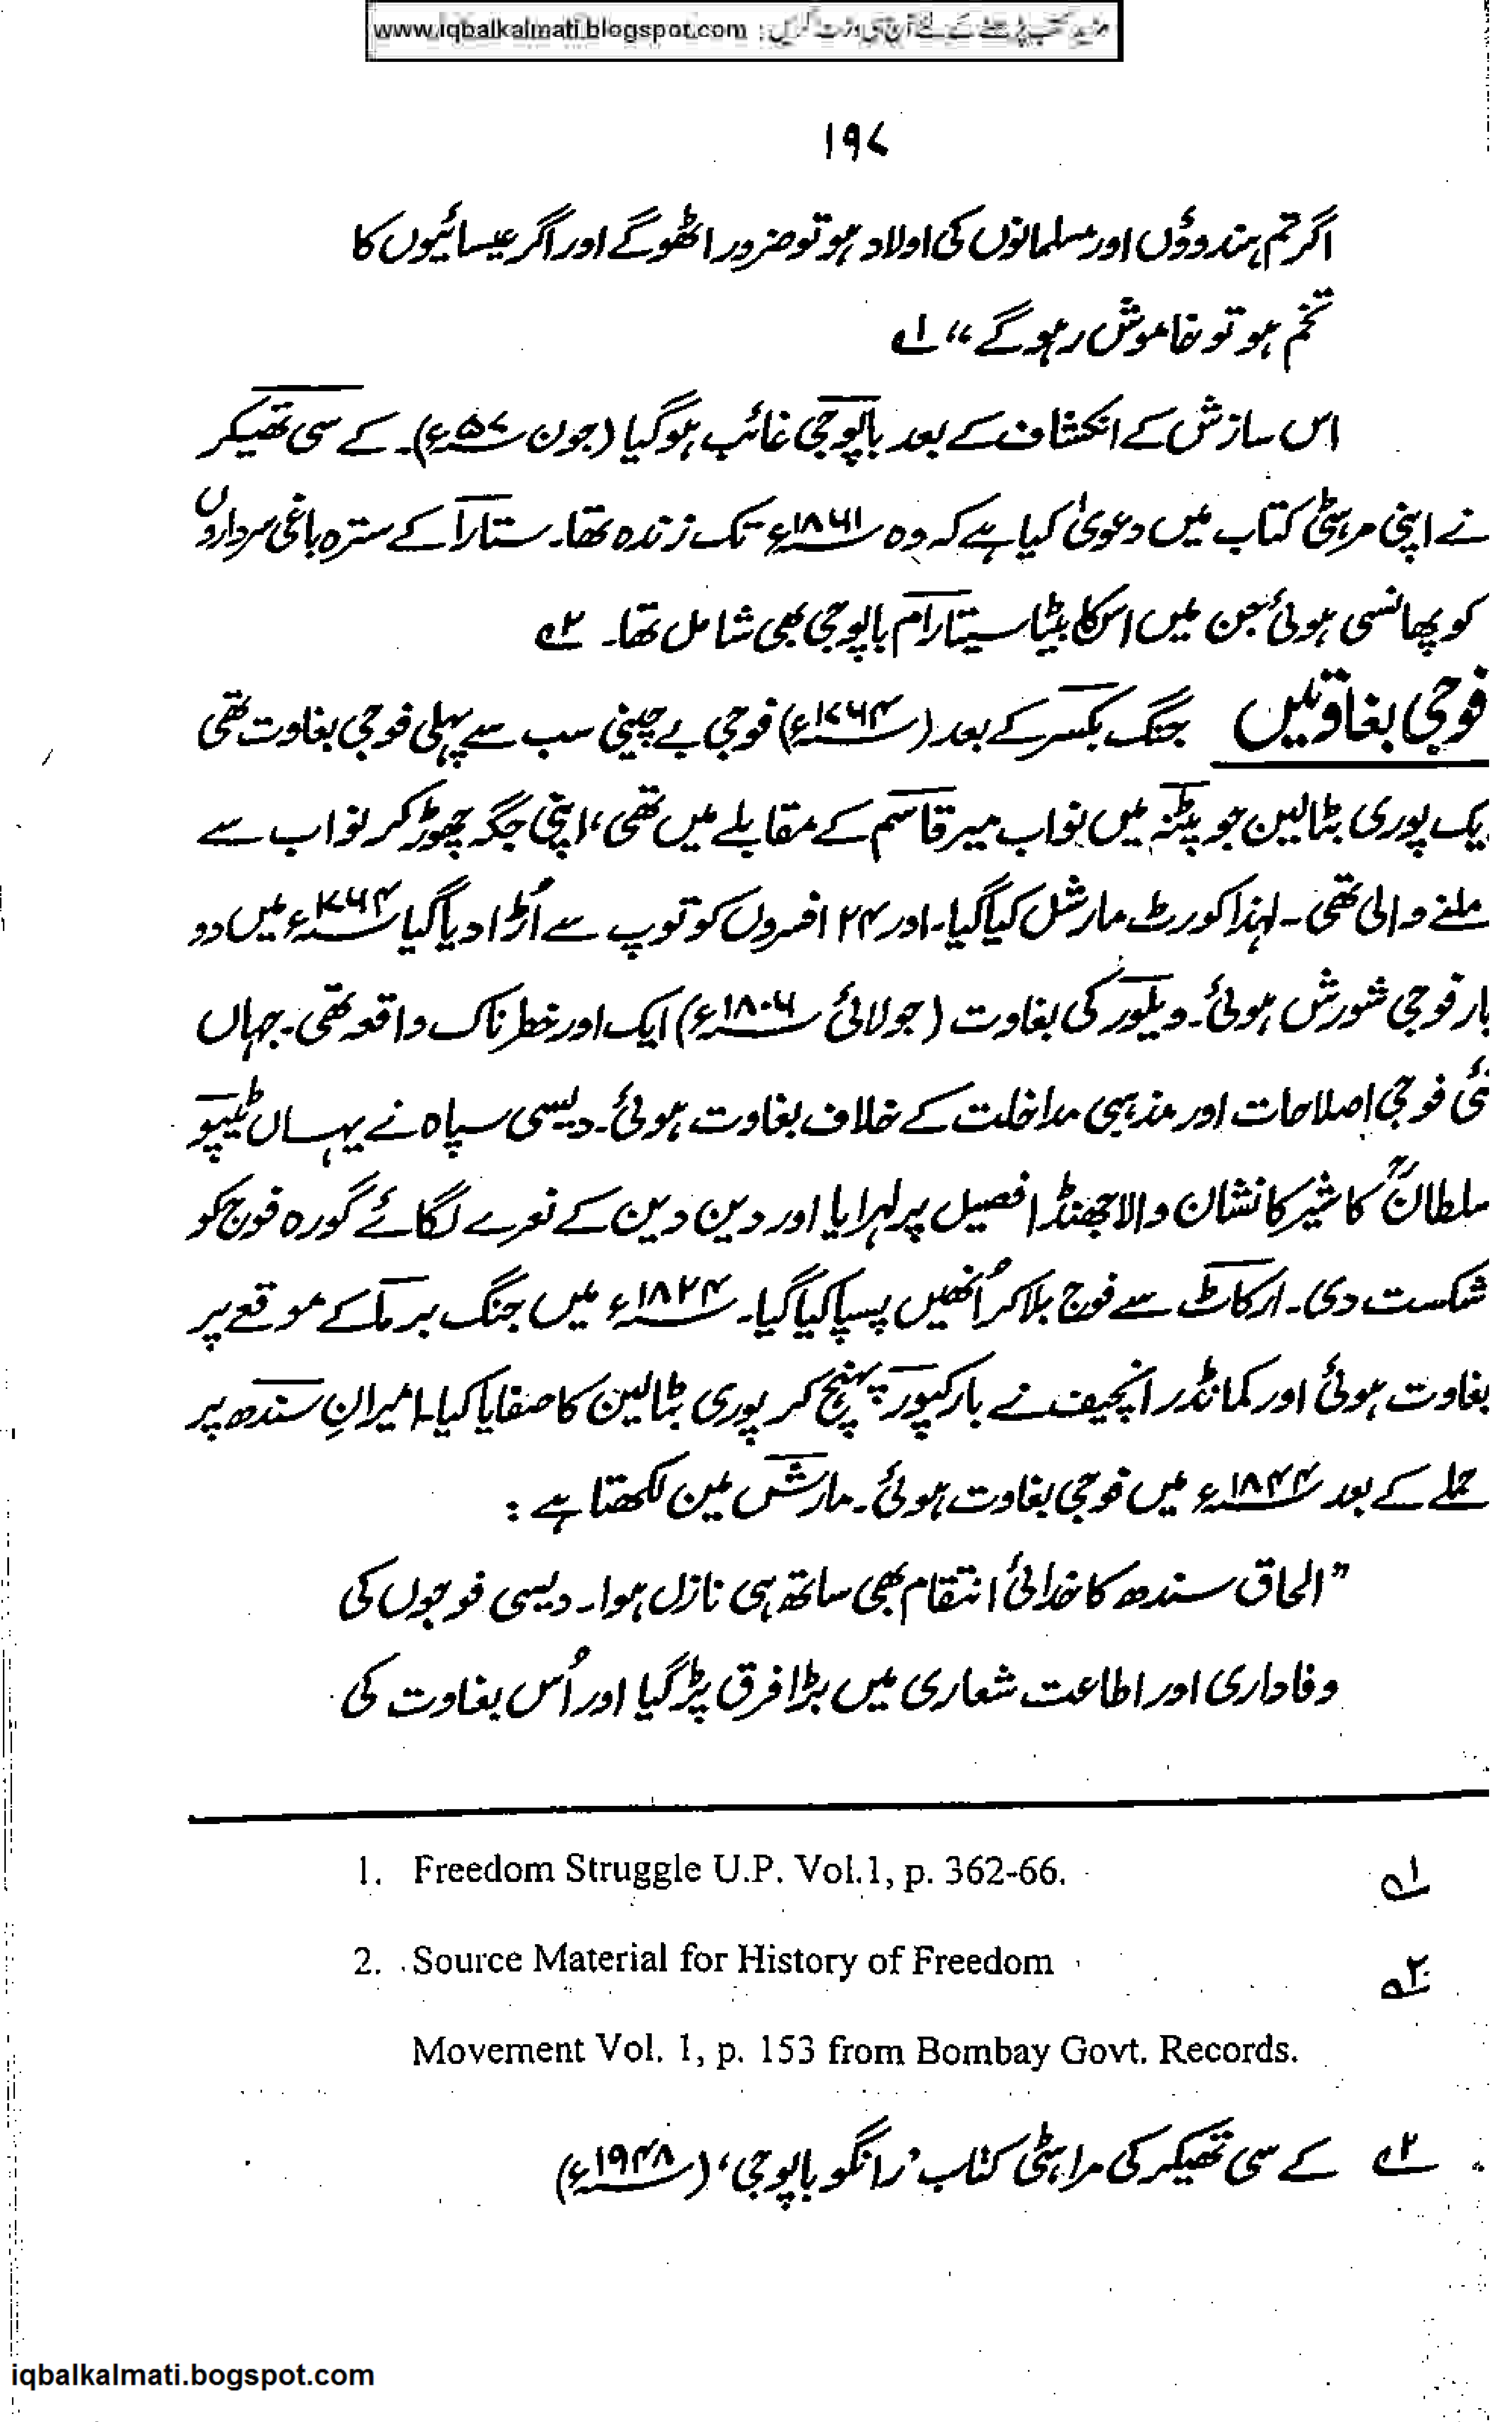 مزید کتب پڑھنے کے لئے آج ہی وزٹ کریں : www.iqbalkalmati.blogspot.com
۱۹۷
اگر تم ہندوؤں اور مسلمانوں کی اولاد ہو تو ضرور اٹھو گے اور اگر عیسائیوں کا
تخم ہو تو خاموش رہو گے“ ۱ے
اس سازش کے انکشاف کے بعد باپوجی غائب ہوگیا (جون ۵۷ء)۔ کے سی تھیکر
نے اپنی مرہٹی کتاب میں دعویٰ کیا ہے کہ وہ ۱۸۶۱ء تک زندہ تھا۔ ستارا کے سترہ باغی سرداروں
کو پھانسی ہوئی جن میں اس کا بیٹا سیتارام باپوجی بھی شامل تھا۔ ۲ے
فوجی بغاوتیں جنگ بکسر کے بعد (۱۷۶۴ء) فوجی بے چینی سب سے پہلی فوجی بغاوت تھی
یک پوری بٹالین جو پٹنہ میں نواب میر قاسم کے مقابلے میں تھی، اپنی جگہ چھوڑ کر نواب سے
ملنے والی تھی۔ لہذا کورٹ مارشل کیا گیا۔ اور ۲۴ افسروں کو توپ سے اُڑا دیا گیا ۱۷۶۴ء میں دو
بار فوجی شورش ہوئی۔ ویلور کی بغاوت (جولائی ۱۸۰۶ء) ایک اور خطرناک واقعہ تھی۔ جہاں
نئی فوجی اصلاحات اور مذہبی مداخلت کے خلاف بغاوت ہوئی۔ دیسی سپاہ نے یہاں ٹیپو
سلطانؒ کا شیر کا نشان والا جھنڈا فصیل پر لہرایا اور دین دین کے نعرے لگائے گورہ فوج کو
شکست دی۔ ارکاٹ سے فوج بلا کر اُنھیں پسپا کیا گیا۔ ۱۸۲۴ء میں جنگ برما کے موقعے پر
بغاوت ہوئی اور کمانڈر انچیف نے بارکپور پہنچ کر پوری بٹالین کا صفایا کیا۔ امیرانِ سندھ پر
حملے کے بعد ۱۸۴۴ء میں فوجی بغاوت ہوئی۔ مارش مین لکھتا ہے :
”الحاق سندھ کا خدائی انتقام بھی ساتھ ہی نازل ہوا۔ دیسی فوجوں کی
وفاداری اور اطاعت شعاری میں بڑا فرق پڑ گیا اور اُس بغاوت کی
۱ے 1. Freedom Struggle U.P. Vol.1, p. 362-66.
۲ے 2. Source Material for History of Freedom
Movement Vol. 1, p. 153 from Bombay Govt. Records.
۲ے کے سی تھیکر کی مراہٹی کتاب ’رانگو باپوجی‘ (۱۹۴۸ء)
iqbalkalmati.bogspot.com